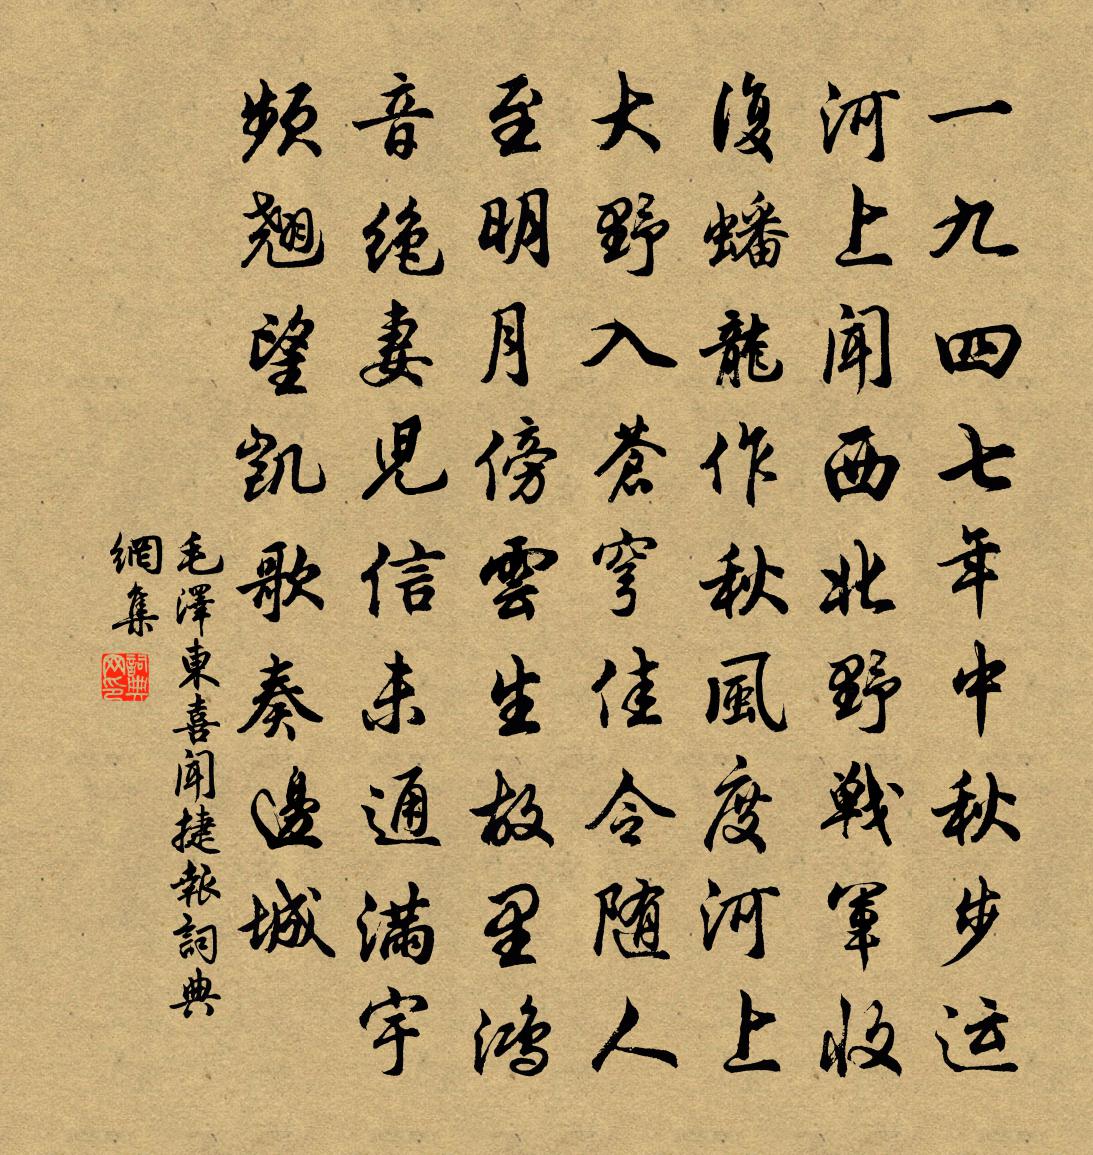 一九四七年中秋步运
河上聞西北野戰軍收
復蟠龍作秋風度河上
大野入蒼穹佳令随人
至明月傍雲生故里鴻
音絶妻兒信未通滿宇
頻翹望凱歌奏邊城
毛澤東喜聞捷報詞典
網集
詞典
网印